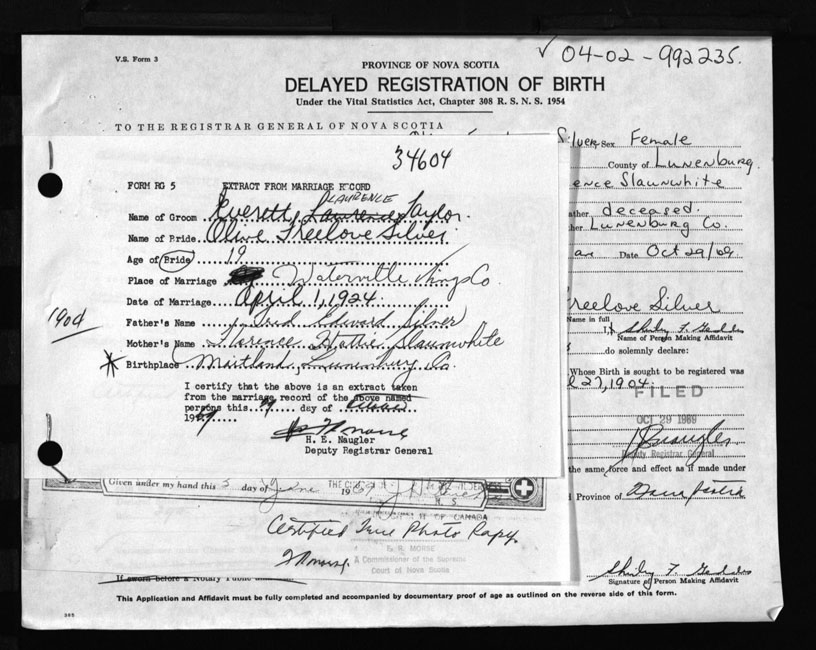 V.S. Form 3
PROVINCE OF NOVA SCOTIA
✓ 04-02-992235.
DELAYED REGISTRATION OF BIRTH
Under the Vital Statistics Act, Chapter 308 R. S. N. S. 1954
TO THE REGISTRAR GENERAL OF NOVA SCOTIA
Silver Sex Female
County of Lunenburg
ence Slaunwhite
deceased.
Lunenburg Co.
Date Oct 29/69
Freelove Silver
Name in full
I, Shirley F. Geddes
Name of Person Making Affidavit
do solemnly declare:
Whose Birth is sought to be registered was
27, 1904.
FILED
OCT 29 1969
Deputy Registrar General
the same force and effect as if made under
Province of Nova Scotia
Shirley F. Geddes
Signature of Person Making Affidavit
34604
FORM RG 5 EXTRACT FROM MARRIAGE RECORD
LAURENCE
Name of Groom Everett Lawrence Taylor.
Name of Bride Olive Freelove Silver
Age of Bride 19
Place of Marriage Waterville Kings Co
Date of Marriage April 1, 1924.
1904
Father's Name Fred Edward Silver
Mother's Name Florence Hattie Slaunwhite
* Birthplace Maitland Lunenburg Co.
I certify that the above is an extract taken
from the marriage record of the above named
persons this 29 day of
1969
H. E. Naugler
Deputy Registrar General
Given under my hand this 3 day of June 1969
OF CANADA
Certified True Photo Kopy.
F Morse
F. R. MORSE
A Commissioner of the Supreme
Court of Nova Scotia
If sworn before a Notary Public
This Application and Affidavit must be fully completed and accompanied by documentary proof of age as outlined on the reverse side of this form.